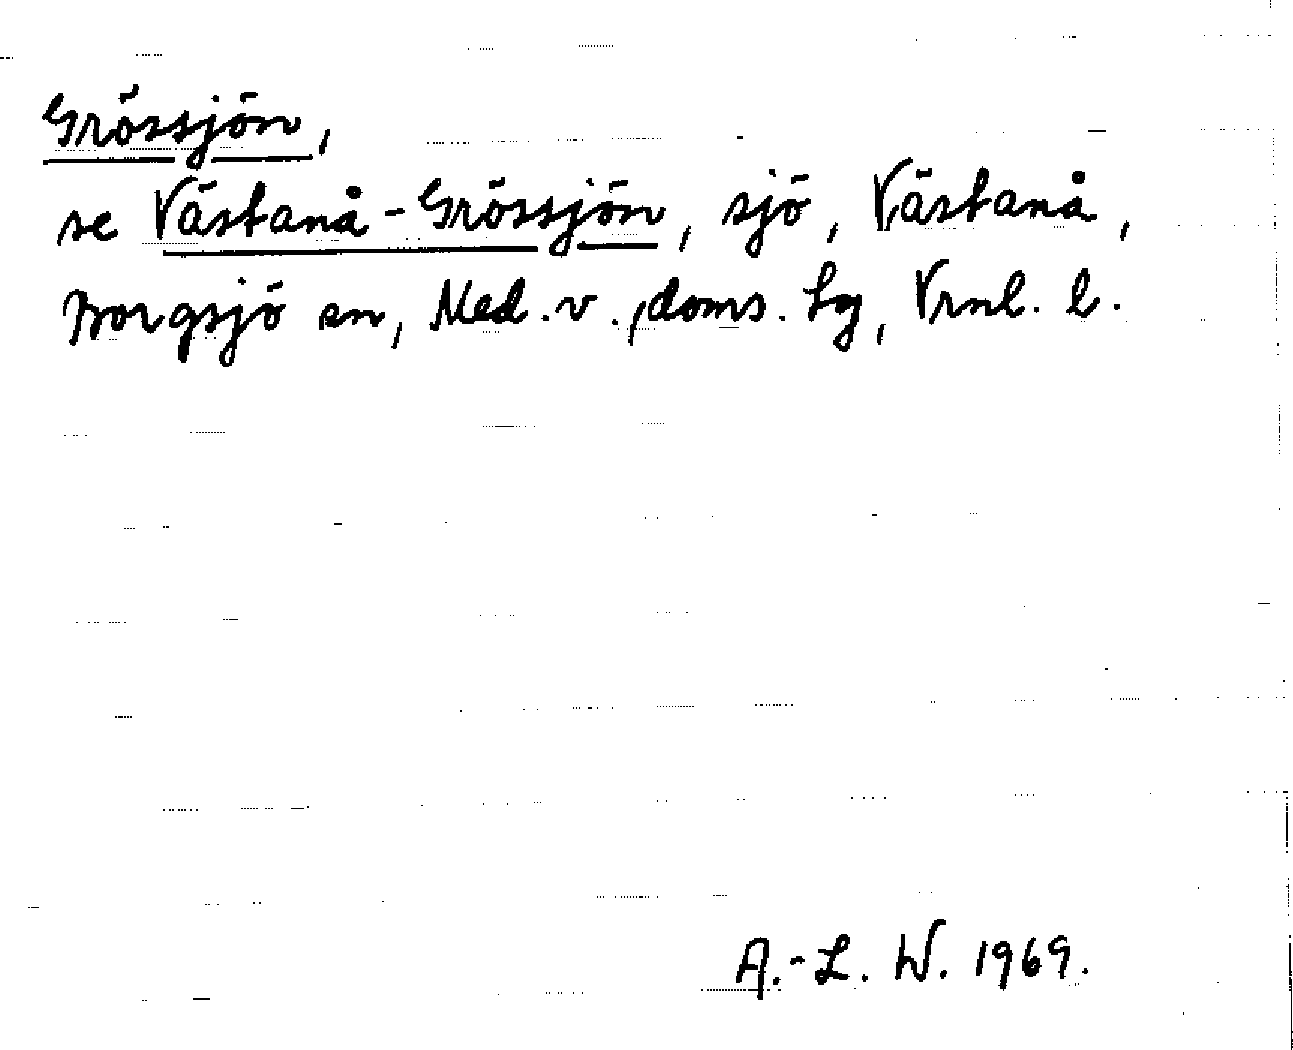 Grössjön,
se Västanå-Grössjön, sjö, Västanå,
Borgsjö sn, Med. v., doms. hg, Vrnl. l.
A.-L. W. 1969.